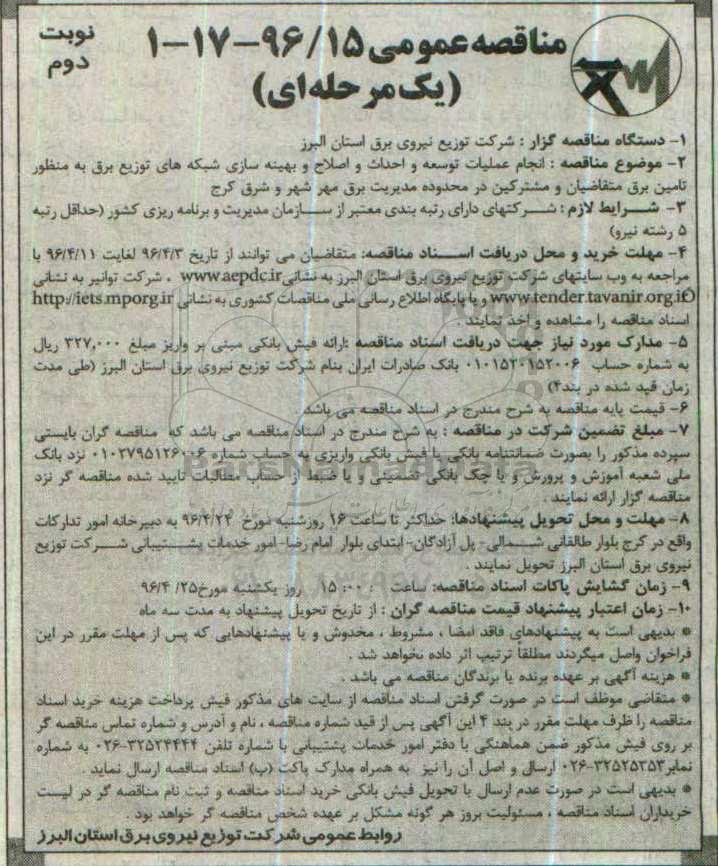 نوبت
دوم
مناقصه عمومی ۹۶/۱۵-۱۷-۱
(یک مرحله‌ای)
۱- دستگاه مناقصه گزار : شرکت توزیع نیروی برق استان البرز
۲- موضوع مناقصه : انجام عملیات توسعه و احداث و اصلاح و بهینه سازی شبکه های توزیع برق به منظور
تامین برق متقاضیان و مشترکین در محدوده مدیریت برق مهر شهر و شرق کرج
۳- شرایط لازم : شرکتهای دارای رتبه بندی معتبر از سازمان مدیریت و برنامه ریزی کشور (حداقل رتبه
۵ رشته نیرو)
۴- مهلت خرید و محل دریافت اسناد مناقصه: متقاضیان می توانند از تاریخ ۹۶/۴/۳ لغایت ۹۶/۴/۱۱ با
مراجعه به وب سایتهای شرکت توزیع نیروی برق استان البرز به نشانی www.aepdc.ir ، شرکت توانیر به نشانی
www.tender.tavanir.org.ir و یا پایگاه اطلاع رسانی ملی مناقصات کشوری به نشانی http://iets.mporg.ir
اسناد مناقصه را مشاهده و اخذ نمایند .
۵- مدارک مورد نیاز جهت دریافت اسناد مناقصه :ارائه فیش بانکی مبنی بر واریز مبلغ ۳۲۷,۰۰۰ ریال
به شماره حساب ۰۱۰۱۵۲۰۱۵۲۰۰۶ بانک صادرات ایران بنام شرکت توزیع نیروی برق استان البرز (طی مدت
زمان قید شده در بند۴)
۶- قیمت پایه مناقصه به شرح مندرج در اسناد مناقصه می باشد
۷- مبلغ تضمین شرکت در مناقصه : به شرح مندرج در اسناد مناقصه می باشد که مناقصه گران بایستی
سپرده مذکور را بصورت ضمانتنامه بانکی یا فیش بانکی واریزی به حساب شماره ۰۱۰۲۷۹۵۱۲۶۰۰۶ نزد بانک
ملی شعبه آموزش و پرورش و یا چک بانکی تضمینی و یا ضبط از حساب مطالبات تایید شده مناقصه گر نزد
مناقصه گزار ارائه نمایند .
۸- مهلت و محل تحویل پیشنهادها: حداکثر تا ساعت ۱۶ روزشنبه مورخ ۹۶/۴/۲۴ به دبیرخانه امور تدارکات
واقع در کرج بلوار طالقانی شمالی- پل آزادگان- ابتدای بلوار امام رضا- امور خدمات پشتیبانی شرکت توزیع
نیروی برق استان البرز تحویل نمایند .
۹- زمان گشایش پاکات اسناد مناقصه: ساعت ۰۰: ۱۵ روز یکشنبه مورخ۲۵/ ۹۶/۴
۱۰- زمان اعتبار پیشنهاد قیمت مناقصه گران : از تاریخ تحویل پیشنهاد به مدت سه ماه
* بدیهی است به پیشنهادهای فاقد امضا ، مشروط ، مخدوش و یا پیشنهادهایی که پس از مهلت مقرر در این
فراخوان واصل میگردند مطلقا ترتیب اثر داده نخواهد شد .
* هزینه آگهی بر عهده برنده یا برندگان مناقصه می باشد .
* متقاضی موظف است در صورت گرفتن اسناد مناقصه از سایت های مذکور فیش پرداخت هزینه خرید اسناد
مناقصه را ظرف مهلت مقرر در بند ۴ این آگهی پس از قید شماره مناقصه ، نام و آدرس و شماره تماس مناقصه گر
بر روی فیش مذکور ضمن هماهنگی با دفتر امور خدمات پشتیبانی با شماره تلفن ۳۲۵۲۴۴۴۴-۰۲۶ به شماره
نمابر۳۲۵۲۵۳۵۳-۰۲۶ ارسال و اصل آن را نیز به همراه مدارک پاکت (ب) اسناد مناقصه ارسال نماید .
* بدیهی است در صورت عدم ارسال یا تحویل فیش بانکی خرید اسناد مناقصه و ثبت نام مناقصه گر در لیست
خریداران اسناد مناقصه ، مسئولیت بروز هر گونه مشکل بر عهده شخص مناقصه گر خواهد بود .
روابط عمومی شرکت توزیع نیروی برق استان البرز
ParsNamadData